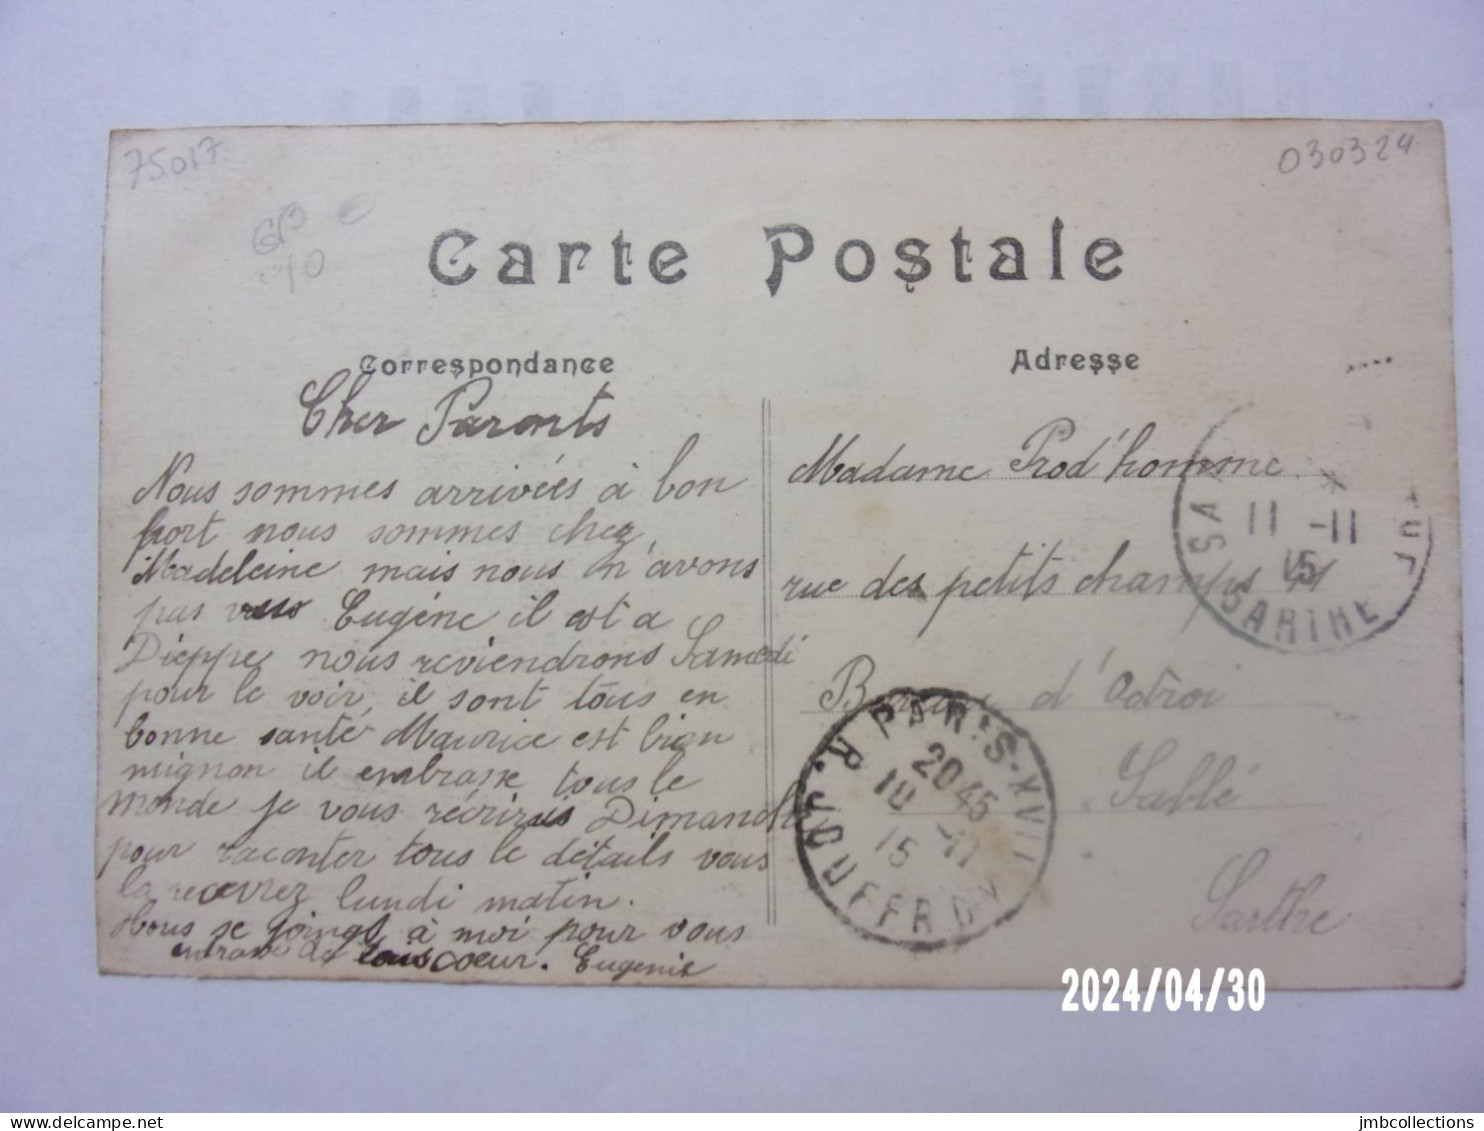 75017
030324
GB
10
Carte Postale
Correspondance
Adresse
Cher Parents
Nous sommes arrivées à bon
port nous sommes chez
Madeleine mais nous n'avons
pas vus Eugéne il est a
Dieppe nous reviendrons Samedi
pour le voir, il sont tous en
bonne santé Maurice est bien
mignon il embrasse tous le
monde je vous récrirais Dimanch
pour raconter tous le détails vous
la recevrez lundi matin.
Nous se joings à moi pour vous
embrasse de tous coeur. Eugenie
Madame Prod'homme
rue des petits champs
Bureau d'Octroi
Sablé
Sarthe
SA
11 -11
15
SARTHE
PARIS-XVII
20 45
10 -11
15
R. JOUFFROY
2024/04/30
jmbcollections